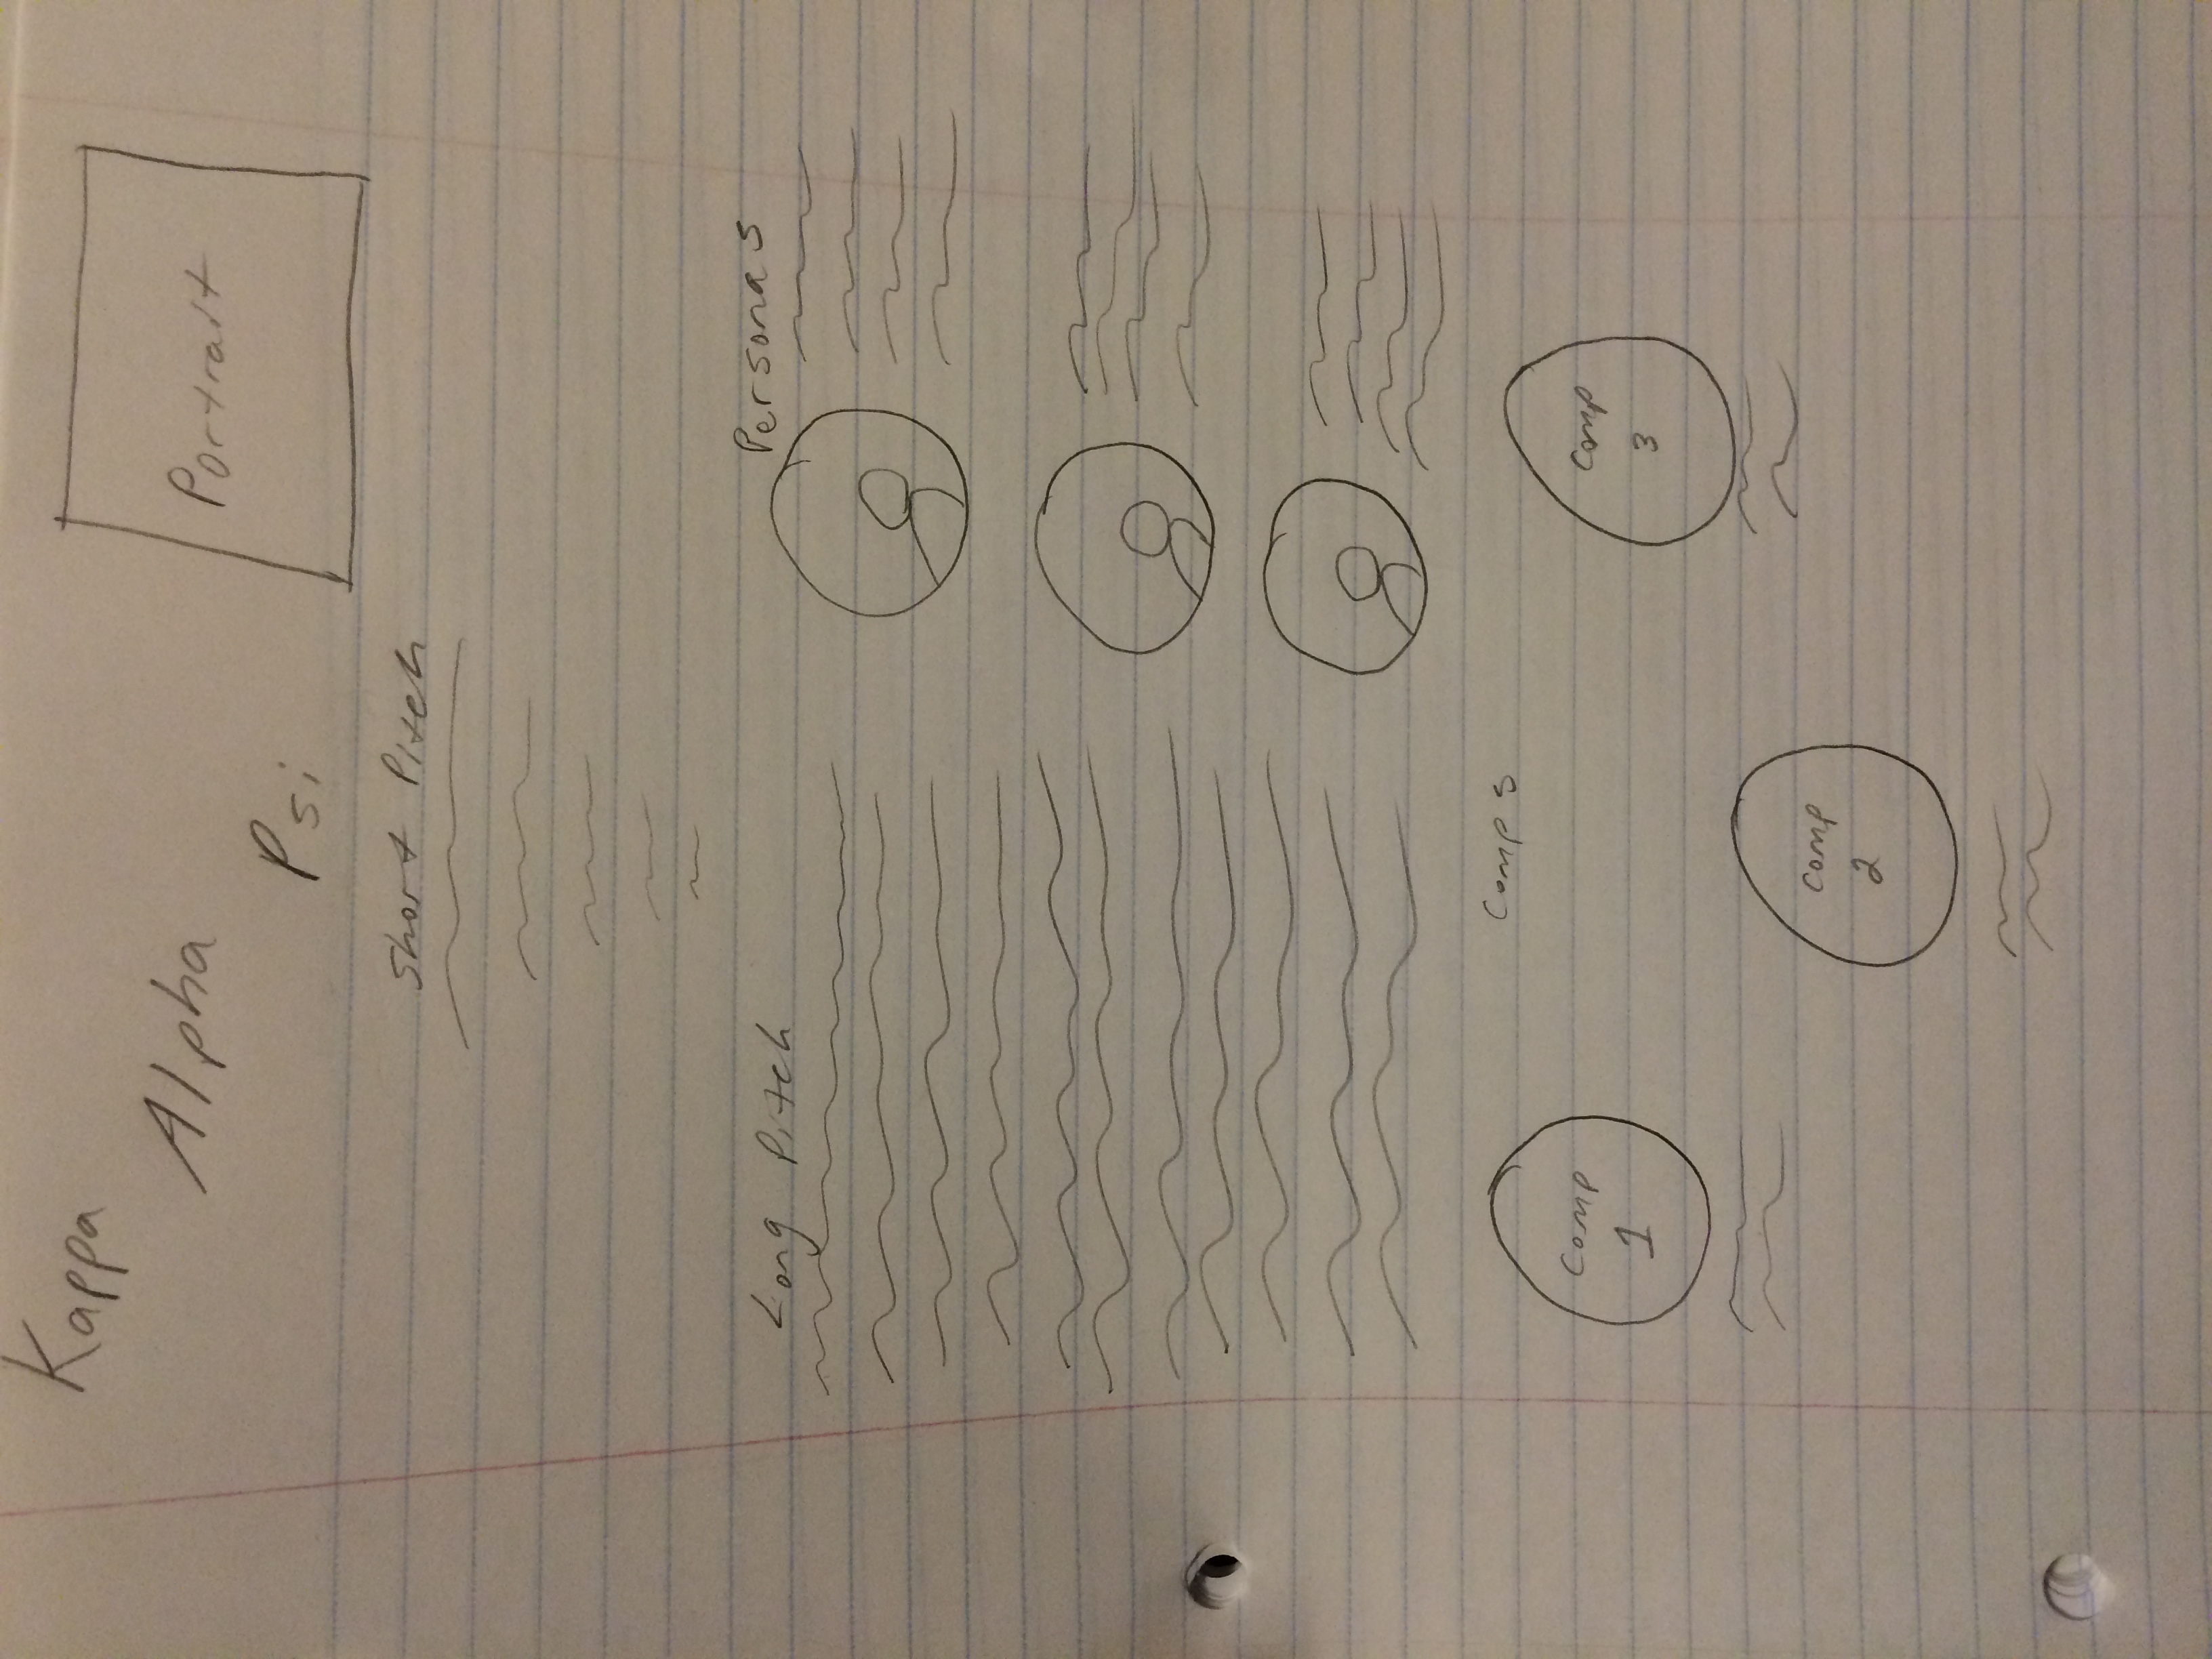 Kappa
Alpha
Psi
Portrait
Short Pitch
Long Pitch
Personas
Comps
Comp
1
Comp
2
Comp
3